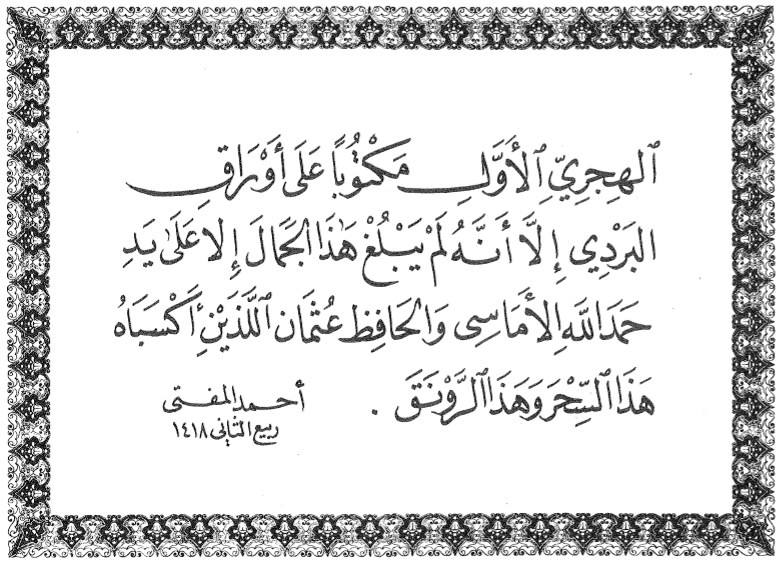 ٱلهِجرِيِّ ٱلأَوَّلِ مَكْتُوباً عَلَى أَوْرَاقِ
البَرْدِي إِلَّا أَنَّهُ لَمْ يَبْلُغْ هَٰذَا الجَمَالَ إِلا عَلَىٰ يَدِ
حَمَدَ اللَّهِ الأَمَاسِي وَالحَافِظ عُثمَان ٱللَّذَيْنِ أَكْسَبَاهُ
هَذَا ٱلسِّحْرَ وَهَذَا ٱلرَّوْنَقَ .
أحمد المفتى
ربيع الثانى ١٤١٨